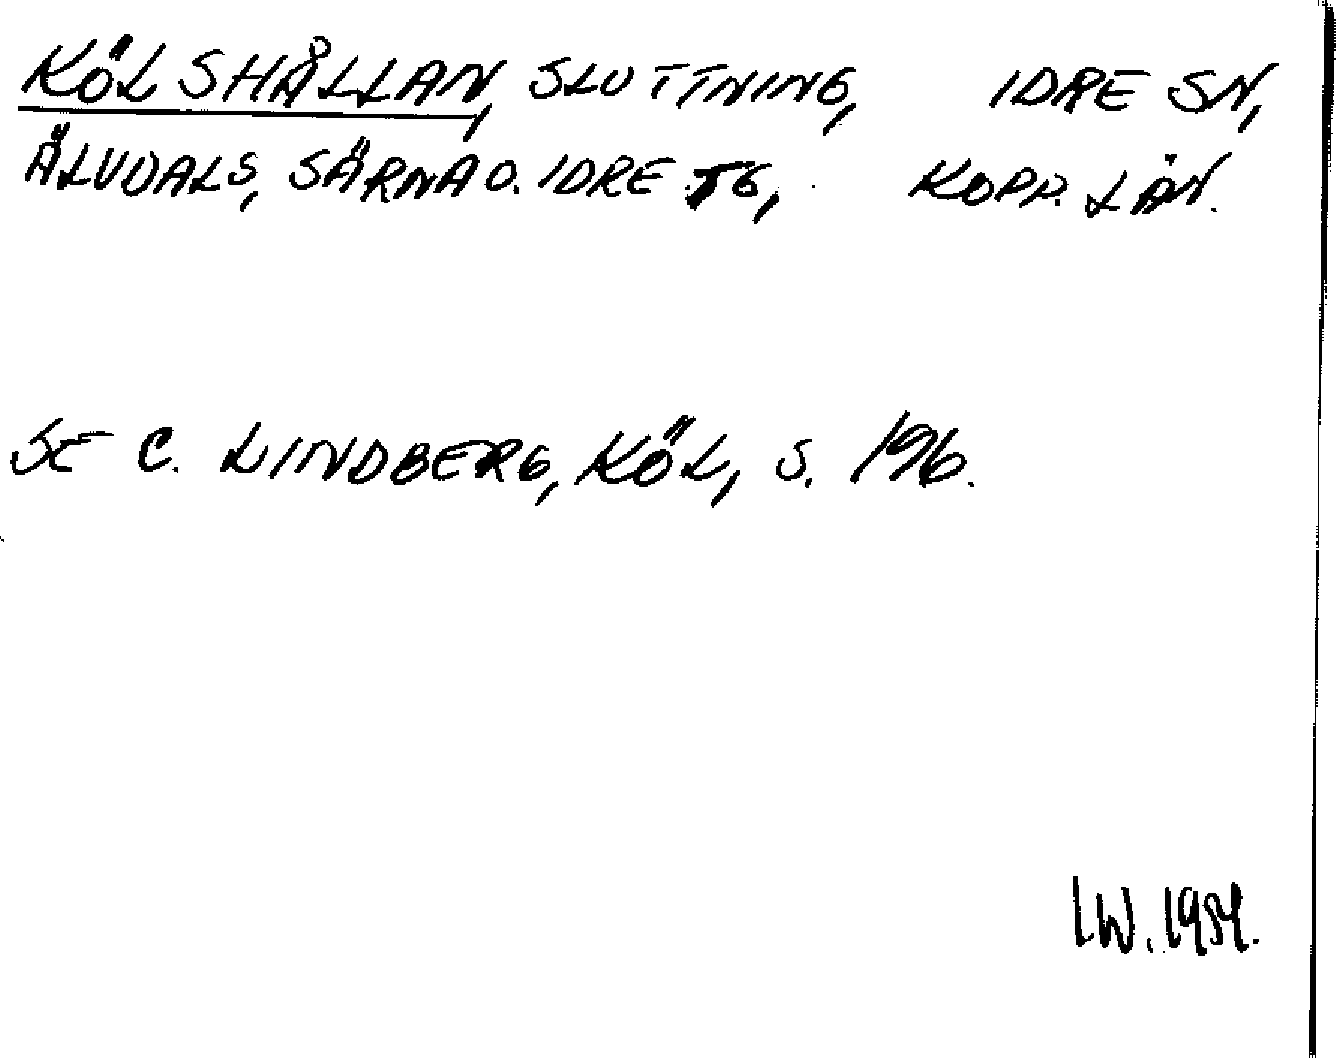 KÖLSHÅLLAN, SLUTTNING, IDRE SN,
ÄLVDALS, SÄRNA O. IDRE TG, KOPP. LÄN.
SE C. LINDBERG, KÖL, S. 196.